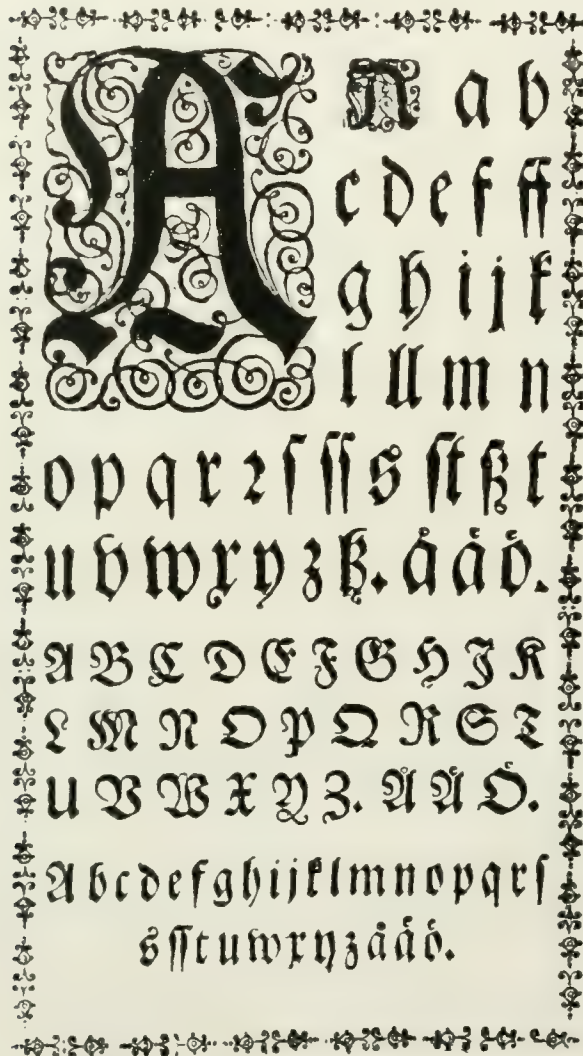 A a b
c d e f ff
g h i j k
l ll m n
o p q r ꝛ ſ ſſ s ſt ß t
u v w x y z tz. å ä ö.
A B C D E F G H J K
L M N O P Q R S T
U V W X Y Z. Å Ä Ö.
A b c d e f g h i j k l m n o p q r ſ
s ſſ t u w x y z å ä ö.